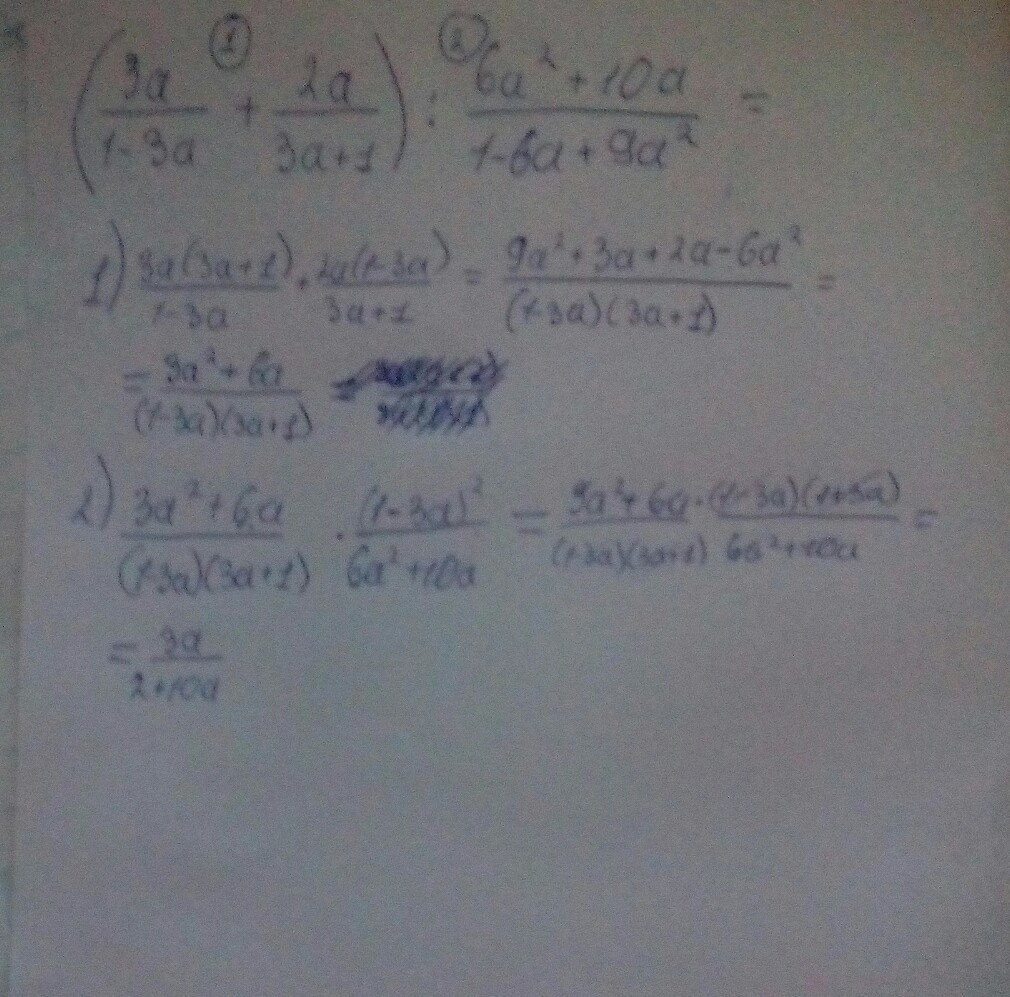 ① ②
(3a/(1-3a) + 2a/(3a+1)) : (6a²+10a)/(1-6a+9a²) =
1) 3a(3a+1)/(1-3a) + 2a(1-3a)/(3a+1) = (9a²+3a+2a-6a²)/((1-3a)(3a+1)) =
= (3a²+6a)/((1-3a)(3a+1)) =
2) (3a²+6a)/((1-3a)(3a+1)) · (1-3a)²/(6a²+10a) = (3a²+6a·(1-3a)(1+3a))/((1-3a)(3a+1) 6a²+10a) =
= 3a/(2+10a)